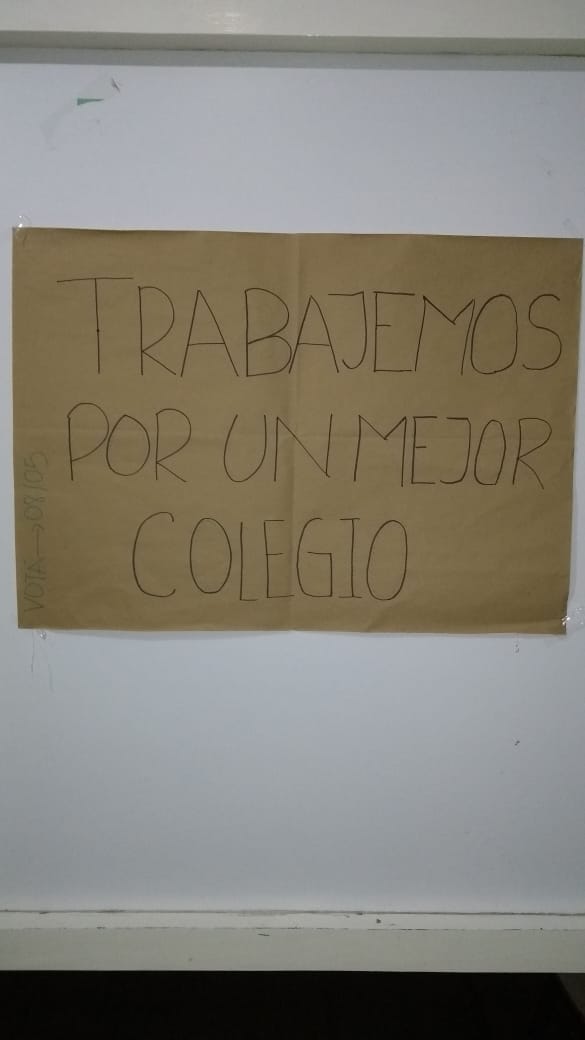 TRABAJEMOS
POR UN MEJOR
COLEGIO
VOTA→08/05